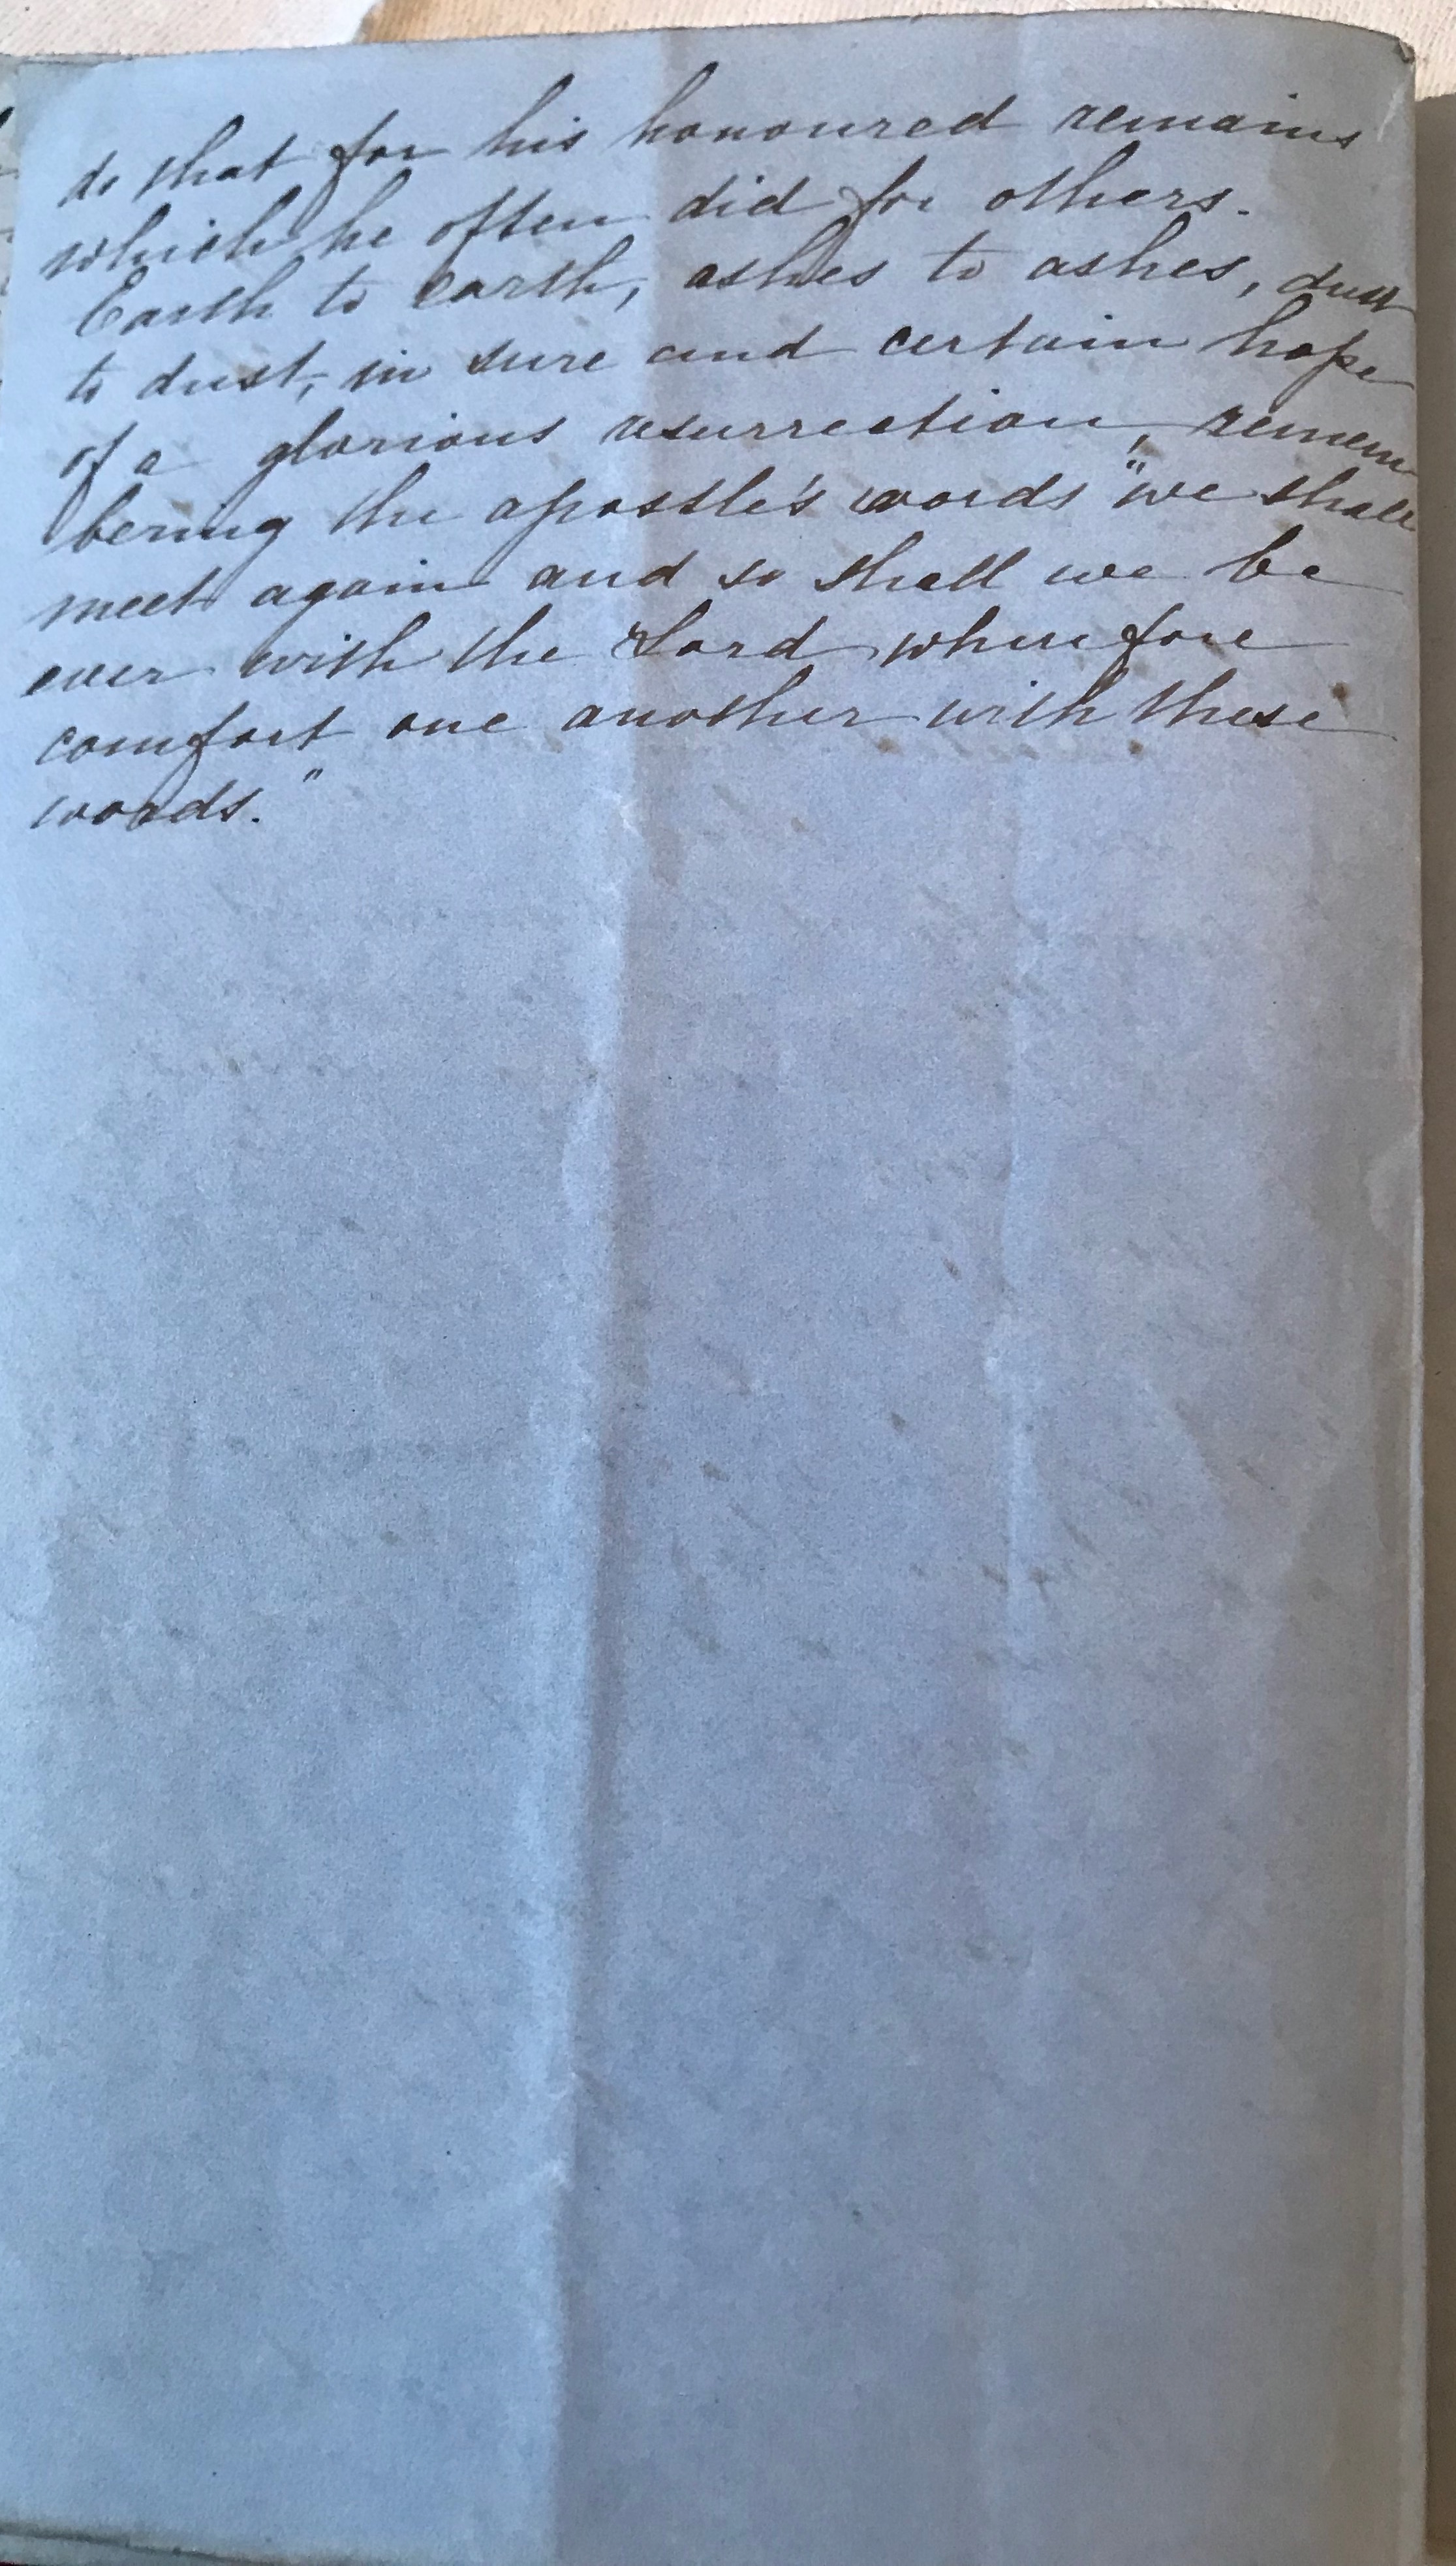 do that for his honoured remains
which he often did for others.
Earth to earth, ashes to ashes, dust
to dust, in sure and certain hope
of a glorious resurrection, remem
bering the apostle's words "we shall
meet again and so shall we be
ever with the Lord wherefore
comfort one another with these
words."